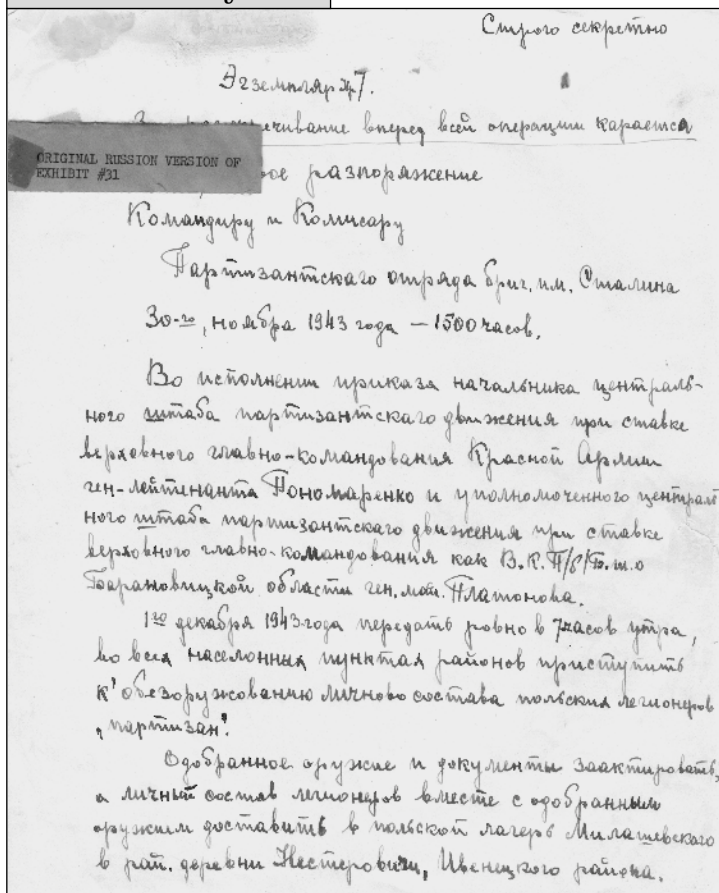 Строго секретно
Экземпляр № 7.
вперед всей операции карается
ORIGINAL RUSSION VERSION OF
EXHIBIT #31
разпоряжение
Командиру и Комисару
Партизантскаго отряда бриг. им. Сталина
30-го, ноября 1943 года – 1500 часов.
Во исполнении приказа начальника централь-
ного штаба партизантскаго движения при ставке
верховного главно-командования Красной Армии
ген-лейтинанта Пономаренко и уполномоченного централ
ного штаба партизантскаго движения при ставке
верховного главно-командования как В.К.П/б/Б. и.о
Барановицкой области ген. маи. Платонова.
1го декабря 1943 года передать ровно в 7 часов утра,
во всех населонных пунктах районов приступить
к' обезоружованию личново состава польских легионеров
„партизан".
Одобранное оружие и документы заактировать,
а личный состав легионеров вместе с одобранным
оружием доставить в польской лагерь Милашевского
в рай. деревни Нестеровичи, Ивенецкого района.